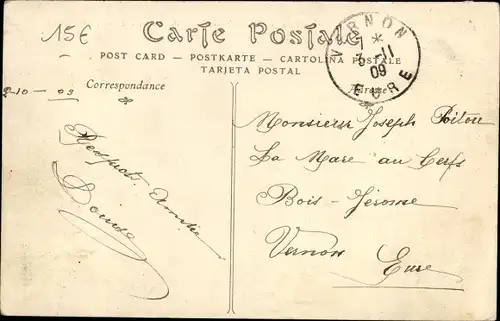 15€
Carte Postale
POST CARD — POSTKARTE — CARTOLINA POSTALE
TARJETA POSTAL
VERNON
1 *
5-11
09
EURE
Correspondance
Adresse
2-10-09
Monsieur Joseph Poitou
La Mare au Cerfs
Bois-Jérome
Vernon
Eure
Louise